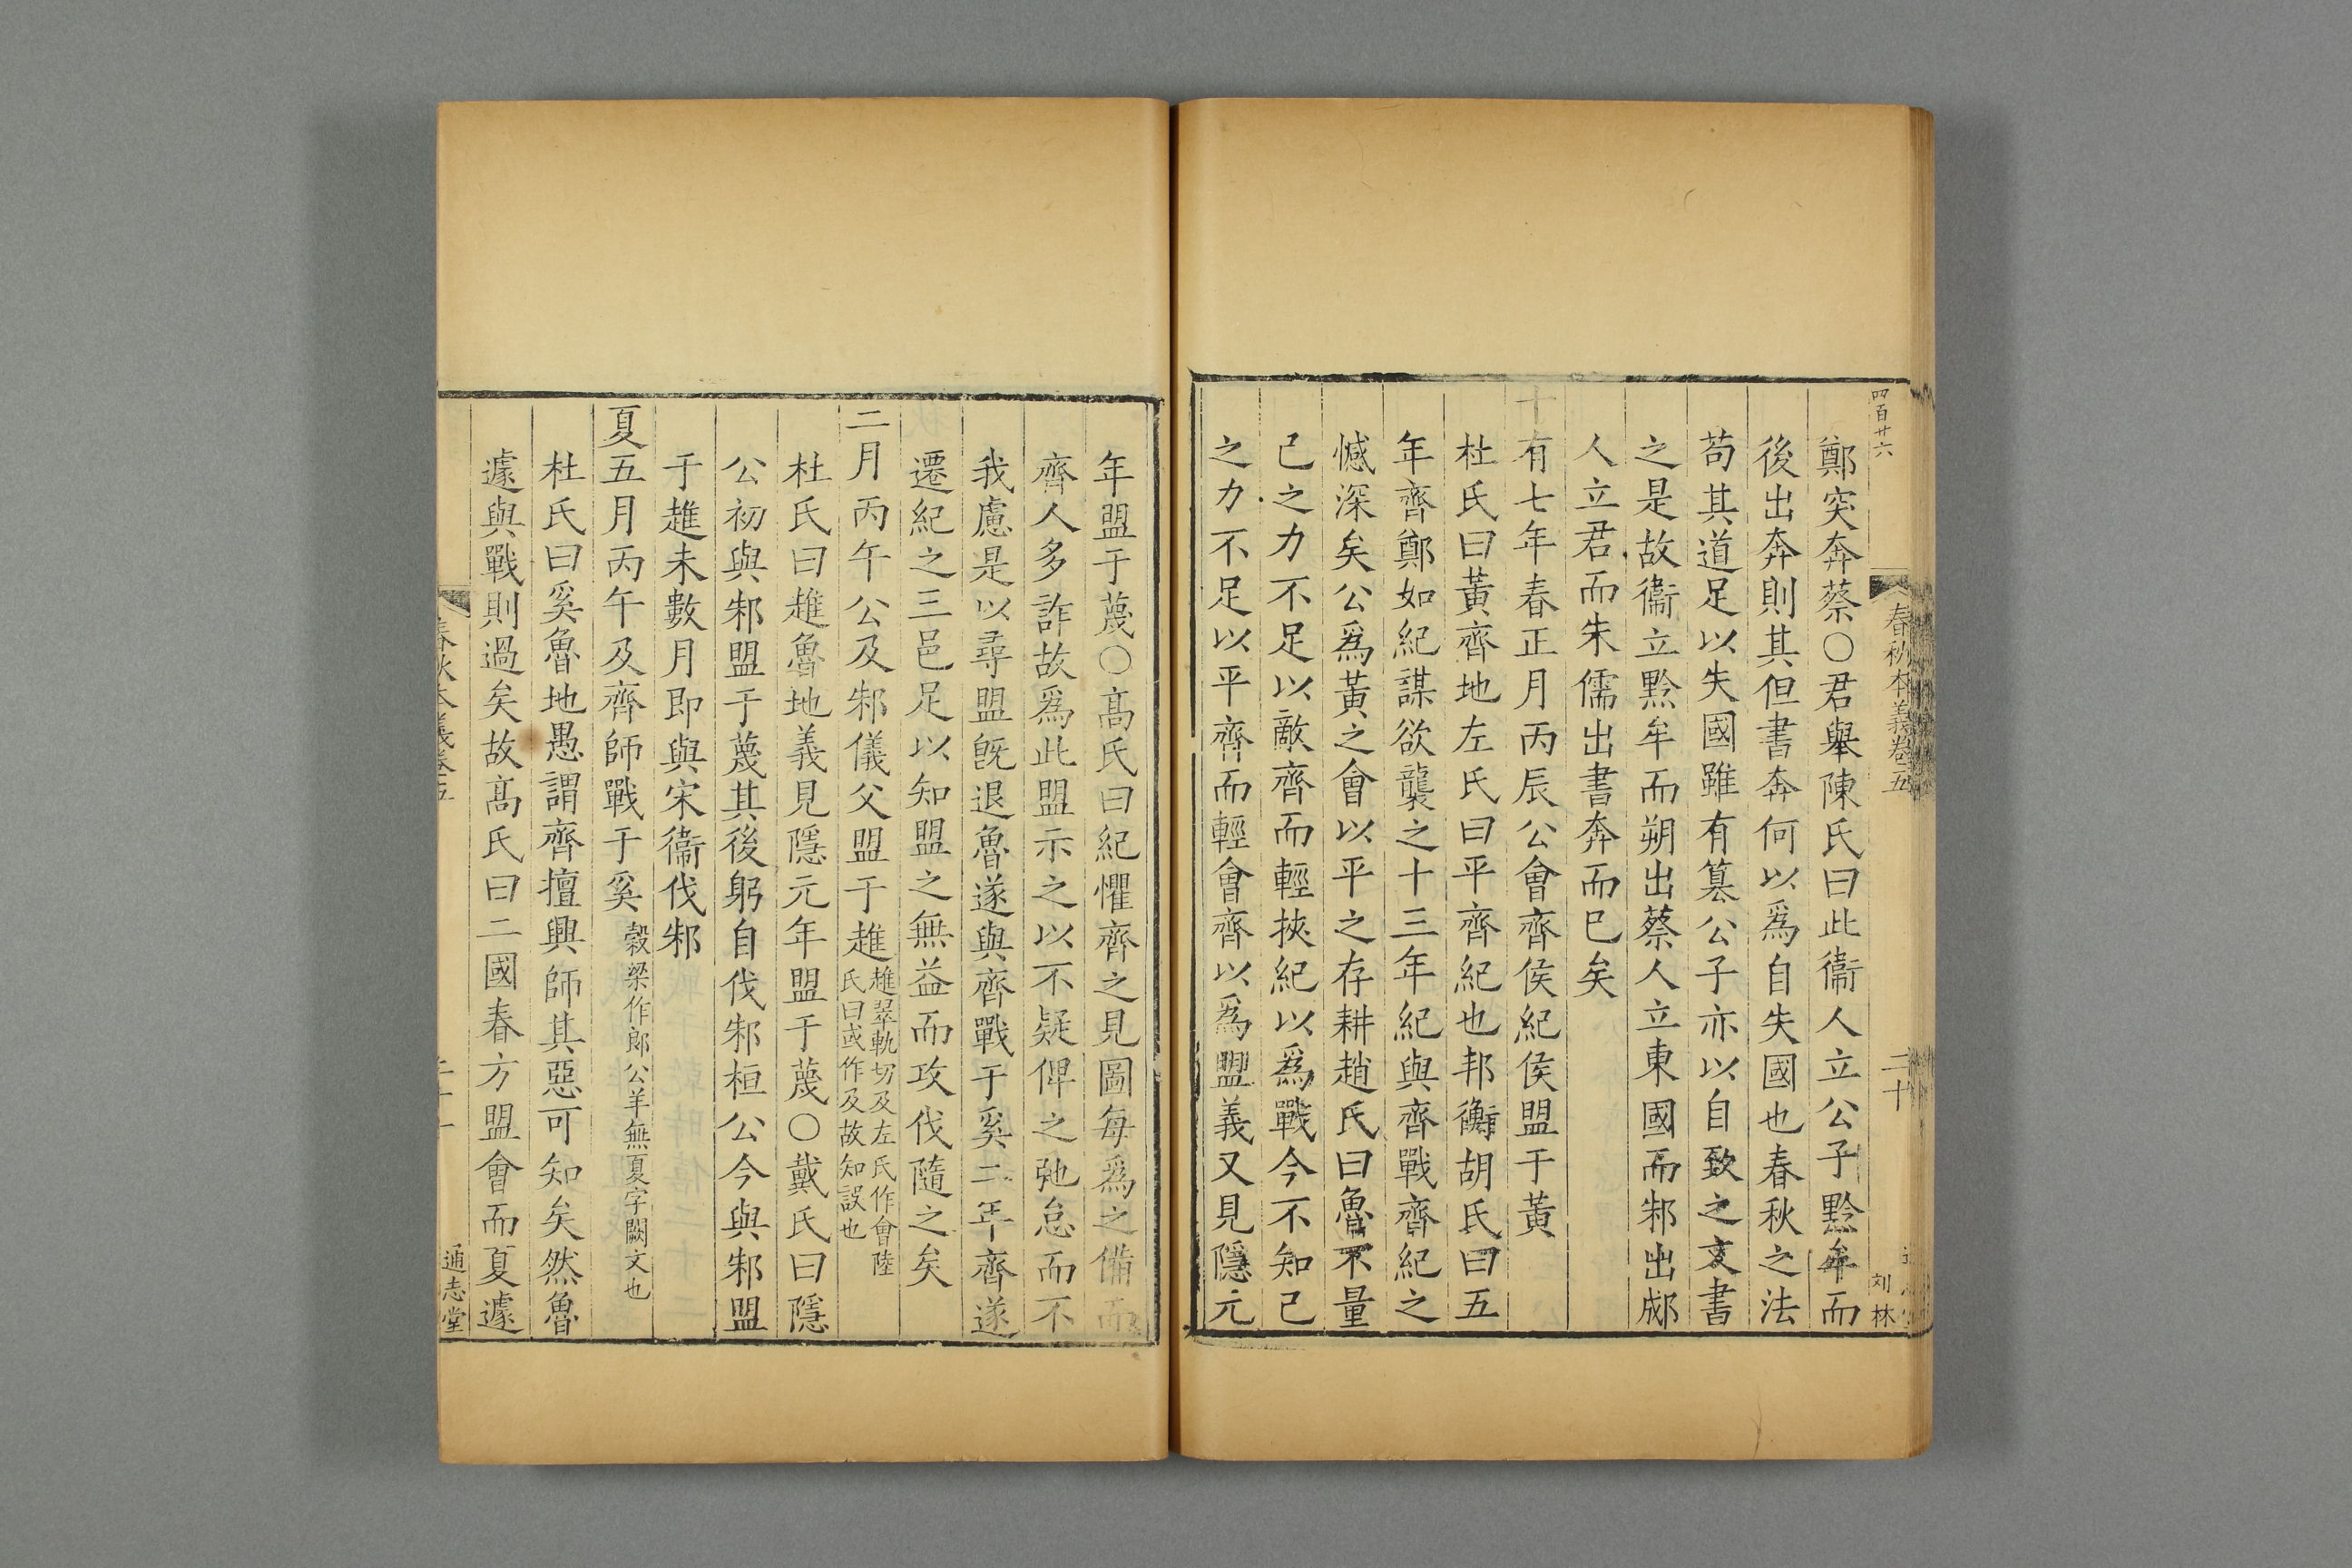 四百廿六
春秋本義卷五
二十
刘林
鄭突奔蔡〇君舉陳氏曰此衞人立公子黔牟而
後出奔則其但書奔何以爲自失國也春秋之法
苟其道足以失國雖有篡公子亦以自致之文書
之是故衞立黔牟而朔出蔡人立東國而邾出郕
人立君而朱儒出書奔而巳矣
十有七年春正月丙辰公會齊侯紀侯盟于黃
杜氏曰黃齊地左氏曰平齊紀也邦衡胡氏曰五
年齊鄭如紀謀欲襲之十三年紀與齊戰齊紀之
憾深矣公爲黃之會以平之存耕趙氏曰魯不量
己之力不足以敵齊而輕挾紀以爲戰今不知己
之力不足以平齊而輕會齊以爲盟義又見隱元
年盟于蔑〇高氏曰紀懼齊之見圖每爲之備而
齊人多詐故爲此盟示之以不疑俾之弛怠而不
我慮是以尋盟旣退魯遂與齊戰于奚二年齊遂
遷紀之三邑足以知盟之無益而攻伐隨之矣
二月丙午公及邾儀父盟于趡趡翠軌切及左氏作會陸氏曰或作及故知誤也
杜氏曰趡魯地義見隱元年盟于蔑〇戴氏曰隱
公初與邾盟于蔑其後躬自伐邾桓公今與邾盟
于趡未數月即與宋衞伐邾
夏五月丙午及齊師戰于奚穀梁作郎公羊無夏字闕文也
杜氏曰奚魯地愚謂齊擅興師其惡可知矣然魯
遽與戰則過矣故高氏曰二國春方盟會而夏遽
春秋本義卷五
通志堂